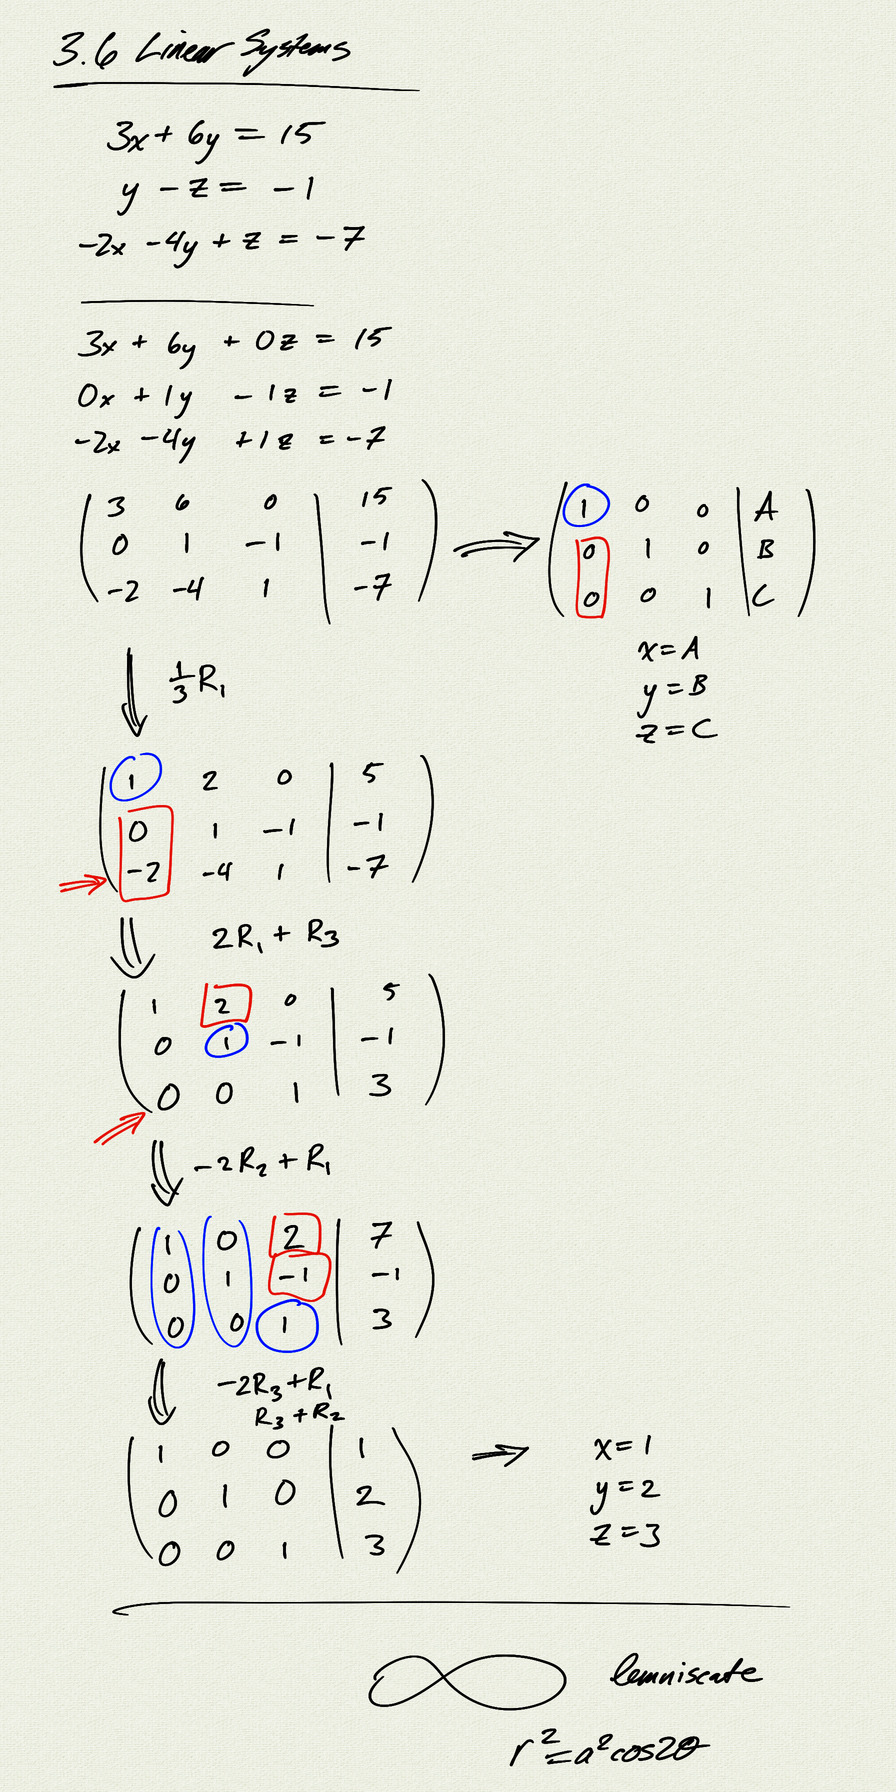 3.6 Linear Systems
3x + 6y = 15
y - z = -1
-2x - 4y + z = -7
3x + 6y + 0z = 15
0x + 1y - 1z = -1
-2x - 4y + 1z = -7
3 6 0 | 15
0 1 -1 | -1
-2 -4 1 | -7
⇒
1 0 0 | A
0 1 0 | B
0 0 1 | C
x = A
y = B
z = C
1/3 R₁
1 2 0 | 5
0 1 -1 | -1
-2 -4 1 | -7
2R₁ + R₃
1 2 0 | 5
0 1 -1 | -1
0 0 1 | 3
-2R₂ + R₁
1 0 2 | 7
0 1 -1 | -1
0 0 1 | 3
-2R₃ + R₁
R₃ + R₂
1 0 0 | 1
0 1 0 | 2
0 0 1 | 3
⇒
x = 1
y = 2
z = 3
lemniscate
r² = a² cos2θ